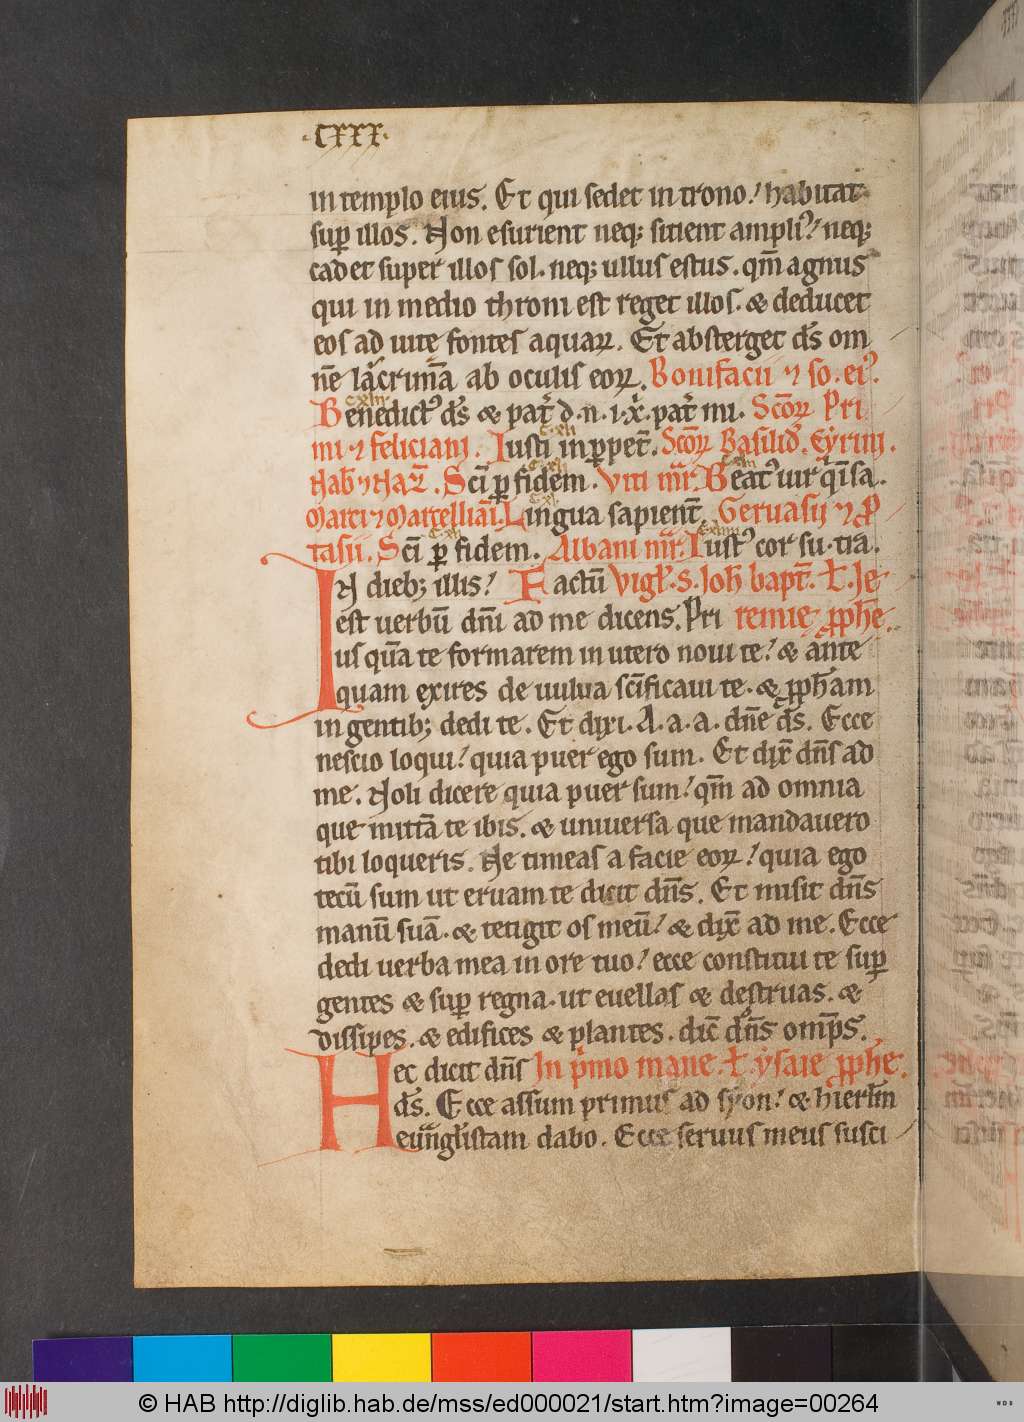 ·CXXX·
in templo eius. Et qui sedet in trono! habitat
sup̱ illos. Non esurient neq; sitient ampliꝰ! neq;
cadet super illos sol. neq; ullus estus. qm̅ agnus
qui in medio throni est reget illos. & deducet
eos ad uite fontes aquaꝝ. Et absterget ds̅ om
ne̅ lacrima̅ ab oculis eoꝝ. Bonifacii ⁊ so. eiꝰ.
Benedictꝰ ds̅ & pat̅ d. n. i. x̅. pat̅ mi. Sc̅oꝝ Pri
mi ⁊ feliciani. Iusti in ꝑpet̅. Sc̅oꝝ Basilid̅. Cyrini
Nab̅ ⁊ Naz̅. Sc̅i ꝑ fidem. Viti mr̅. Beatꝰ uir q̅ i̅ sa.
Marci ⁊ Marcellia̅i. Lingua sapient̅. Geruasii ⁊ P̱
tasii. Sc̅i ꝑ fidem. Albani mr̅. Iustꝰ cor su. tra.
IN dieb; illis! Factu̅ Vigl̅. S. Joh̅ bapt̅. L̅. Je
est uerbu̅ dn̅i ad me dicens. Pri remie ꝓphe̅.
us qua̅ te formarem in utero noui te! & ante
quam exires de uulua sc̅ificaui te. & ꝓph̅am
in gentib; dedi te. Et dixi. A. a. a. dn̅e ds̅. Ecce
nescio loqui! quia puer ego sum. Et dix̅ dn̅s ad
me. Noli dicere quia puer sum! qm̅ ad omnia
que mitta̅ te ibis. & uniuersa que mandauero
tibi loqueris. Ne timeas a facie eoꝝ! quia ego
tecu̅ sum ut eruam te dicit dn̅s. Et misit dn̅s
manu̅ sua̅. & tetigit os meu̅! & dix̅ ad me. Ecce
dedi uerba mea in ore tuo! ecce constitui te sup̱
gentes & sup̱ regna. ut euellas & destruas. &
dissipes. & edifices & plantes. dic̅ dn̅s omp̅s.
Hec dicit dn̅s In p̅mo mane. L̅. ysaie ꝓphe̅.
ds̅. Ecce assum primus ad syon! & hierl̅m
eu̅ngl̅istam dabo. Ecce seruus meus susci
© HAB http://diglib.hab.de/mss/ed000021/start.htm?image=00264